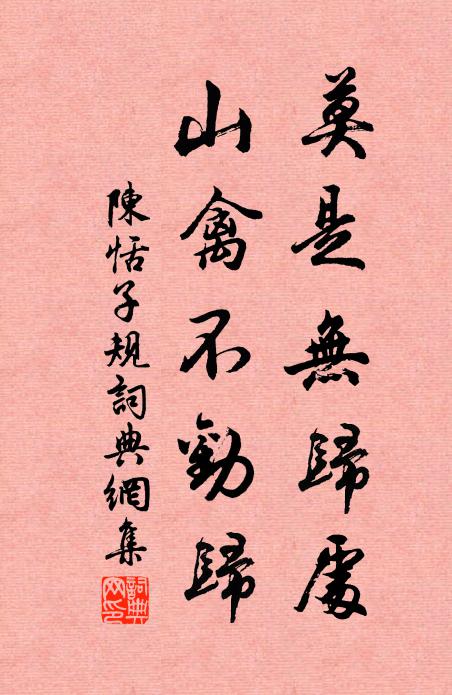 莫是無歸處
山禽不勸歸
陳恬子規詞典網集
詞典網印